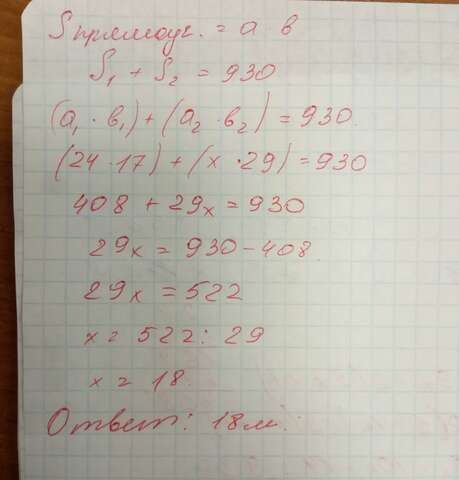 S прямоуг. = а в
S₁ + S₂ = 930
(а₁ · в₁) + (а₂ · в₂) = 930.
(24 · 17) + (х · 29) = 930
408 + 29х = 930
29х = 930 - 408.
29х = 522
х = 522 : 29
х = 18.
Ответ: 18м.